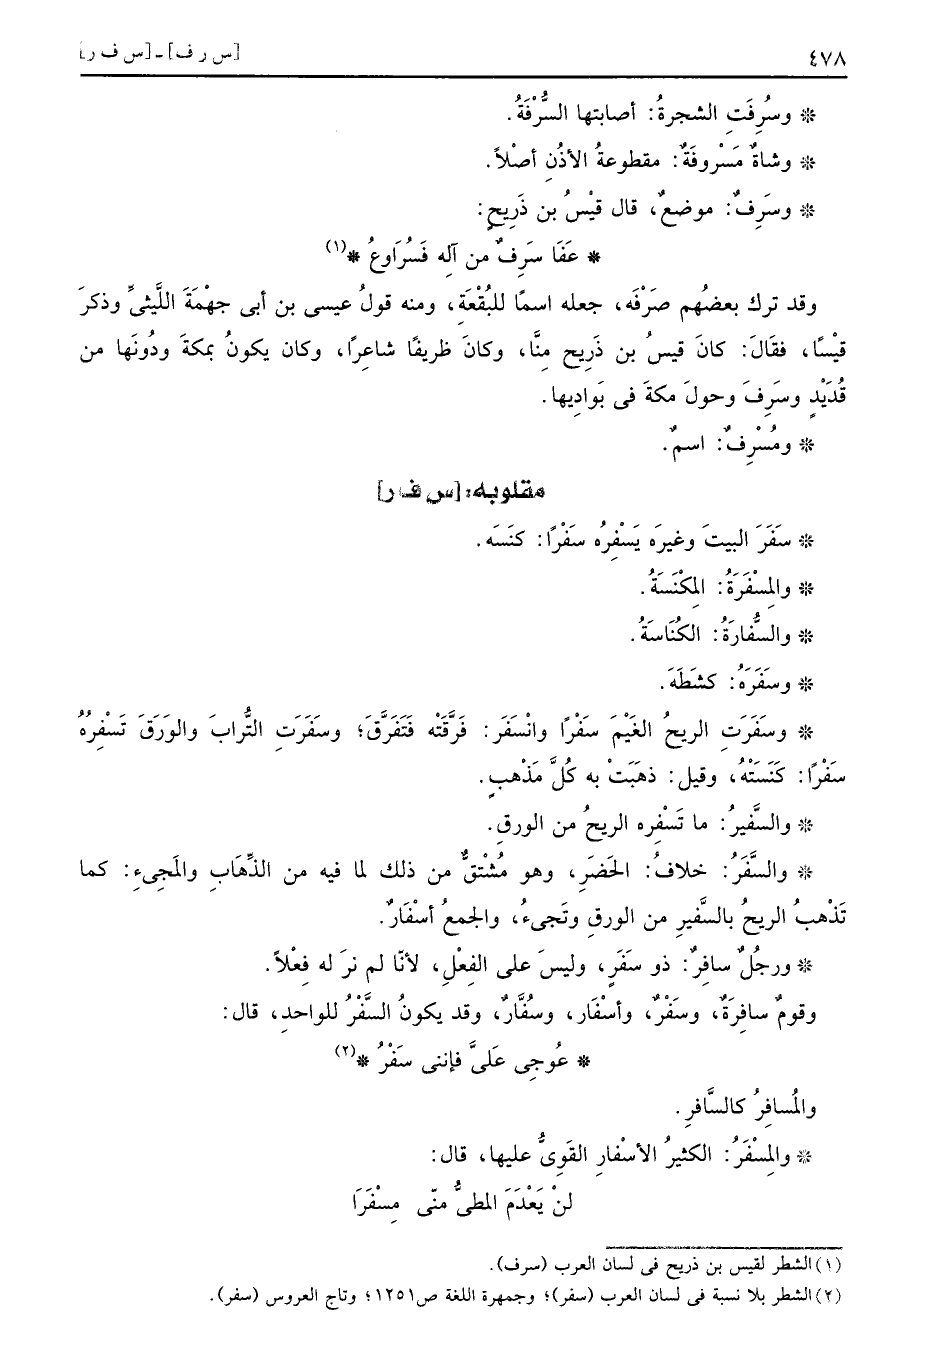 ٤٧٨ [س ر ف] - [س ف ر]
* وسُرِفَتِ الشجرةُ: أصابتها السُّرْفَةُ.
* وشاةٌ مَسْروفَةٌ: مقطوعةُ الأذُنِ أصْلاً.
* وسَرِفٌ: موضعٌ، قال قيْسُ بن ذَرِيحٍ:
* عَفَا سَرِفٌ من آلِه فَسُرَاوِعُ *(١)
وقد ترك بعضُهم صَرْفَه، جعله اسمًا للبُقْعَةِ، ومنه قولُ عيسى بن أبى جهْمَةَ اللَّيثىِّ وذكرَ
قيْسًا، فقَالَ: كانَ قيسُ بن ذَرِيح مِنَّا، وكانَ ظريفًا شاعرًا، وكان يكونُ بمكةَ ودُونَها من
قُدَيْدٍ وسَرِفَ وحولَ مكةَ فى بَوادِيها.
* ومُسْرِفٌ: اسمٌ.
مقلوبه: [س ف ر]
* سَفَرَ البيتَ وغيرَه يَسْفِرُه سَفْرًا: كنَسَه.
* والمِسْفَرَةُ: المِكْنَسَةُ.
* والسُّفارَةُ: الكُنَاسَةُ.
* وسَفَرَهُ: كشَطَهَ.
* وسَفَرَتِ الريحُ الغَيْمَ سَفْرًا وانْسفَر: فَرَّقَتْه فَتَفَرَّقَ؛ وسَفَرَتِ التُّرابَ والورَقَ تَسْفِرُهُ
سَفْرًا: كَنَسَتْهُ، وقيل: ذهَبَتْ به كُلَّ مَذْهبٍ.
* والسَّفيرُ: ما تَسْفِره الريحُ من الورقِ.
* والسَّفَرُ: خلافُ: الحَضَرِ، وهو مُشْتقٌّ من ذلك لما فيه من الذِّهَابِ والمَجِىءِ: كما
تَذْهبُ الريحُ بالسَّفيرِ من الورقِ وتَجىءُ، والجمعُ أسْفَارٌ.
* ورجُلٌ سافِرٌ: ذو سَفَرٍ، وليسَ على الفِعْلِ، لأنّا لم نرَ له فِعْلاً.
وقومٌ سافِرَةٌ، وسَفْرٌ، وأسْفَار، وسُفَّارٌ، وقد يكونُ السَّفْرُ للواحدِ، قال:
* عُوجِى عَلَىَّ فإننى سَفْرُ *(٢)
والمُسافِرُ كالسَّافرِ.
* والمِسْفَرُ: الكثيرُ الأسْفارِ القَوِىُّ عليها، قال:
لنْ يَعْدَمَ المطىُّ منّى مِسْفَرَا
(١) الشطر لقيس بن ذريح فى لسان العرب (سرف).
(٢) الشطر بلا نسبة فى لسان العرب (سفر)؛ وجمهرة اللغة ص١٢٥١؛ وتاج العروس (سفر).